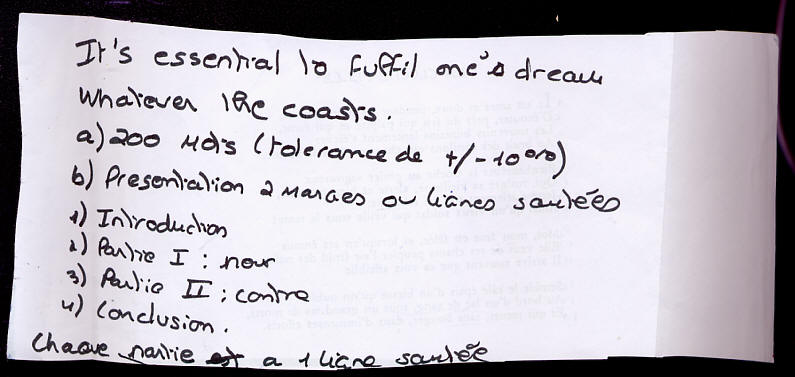 It's essential to fulfil one's dream
Whatever the coasts.
a) 200 Mots (tolerance de +/- 10%)
b) Presentation 2 Marges ou lignes sautées
1) Introduction
2) Partie I : pour
3) Partie II : contre
4) Conclusion.
Chaque partie a 1 ligne sautée